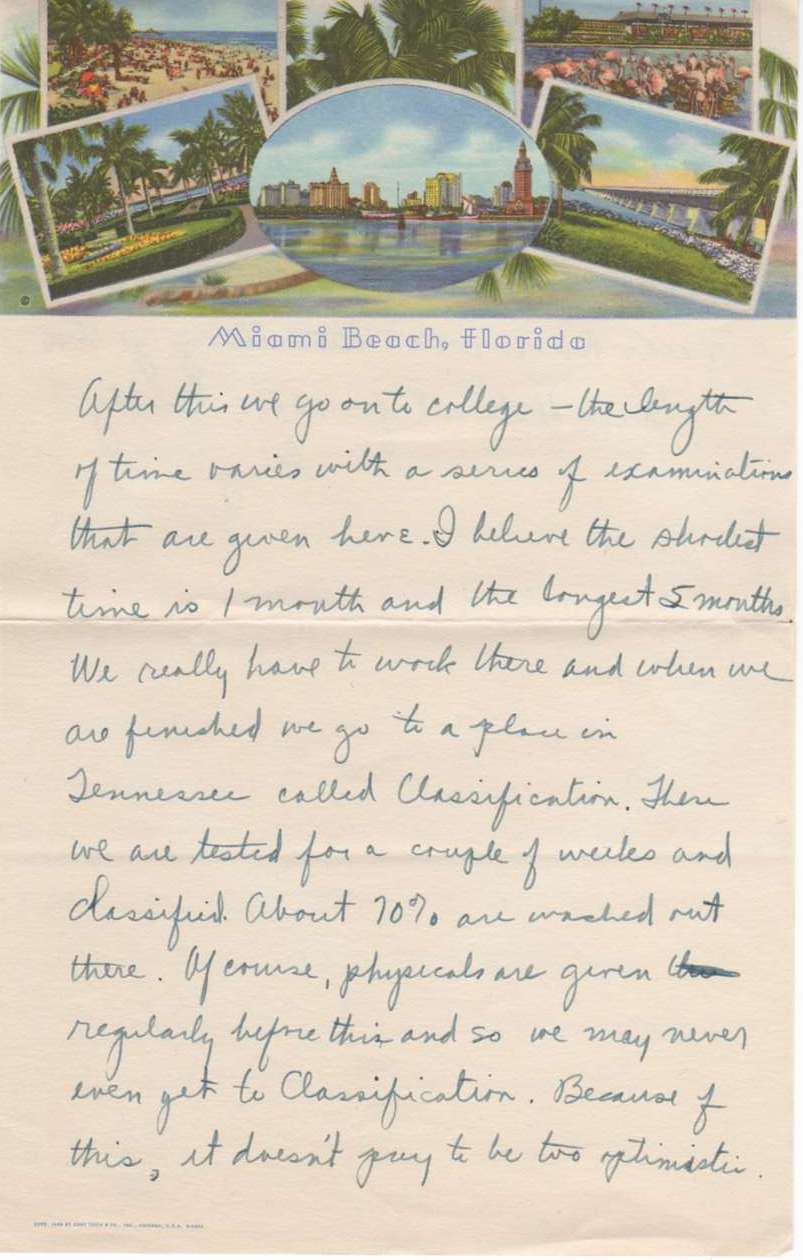 Miami Beach, Florida
After this we go on to college – the length
of time varies with a series of examinations
that are given here. I believe the shortest
time is 1 month and the longest 5 months.
We really have to work there and when we
are finished we go to a place in
Tennessee called Classification. There
we are tested for a couple of weeks and
classified. About 70% are washed out
there. Of course, physicals are given
regularly before this and so we may never
even get to Classification. Because of
this, it doesn't pay to be two optimistic.